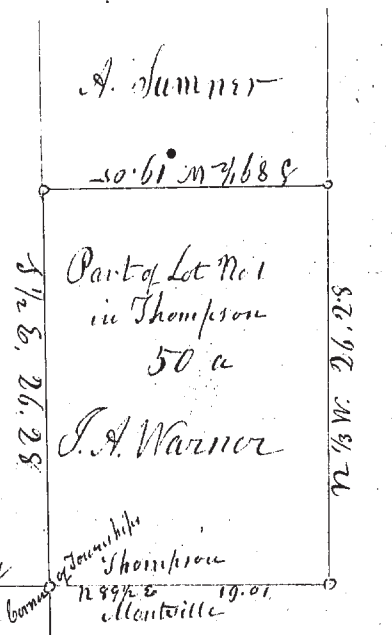 A. Sumner
S 89½ W 19.05
Part of Lot No 1
in Thompson
50 a
J. A. Warner
S ½ E. 26.28
N ½ W. 26.28
Corner of Townships
Thompson
N 89½ E 19.01
Montville